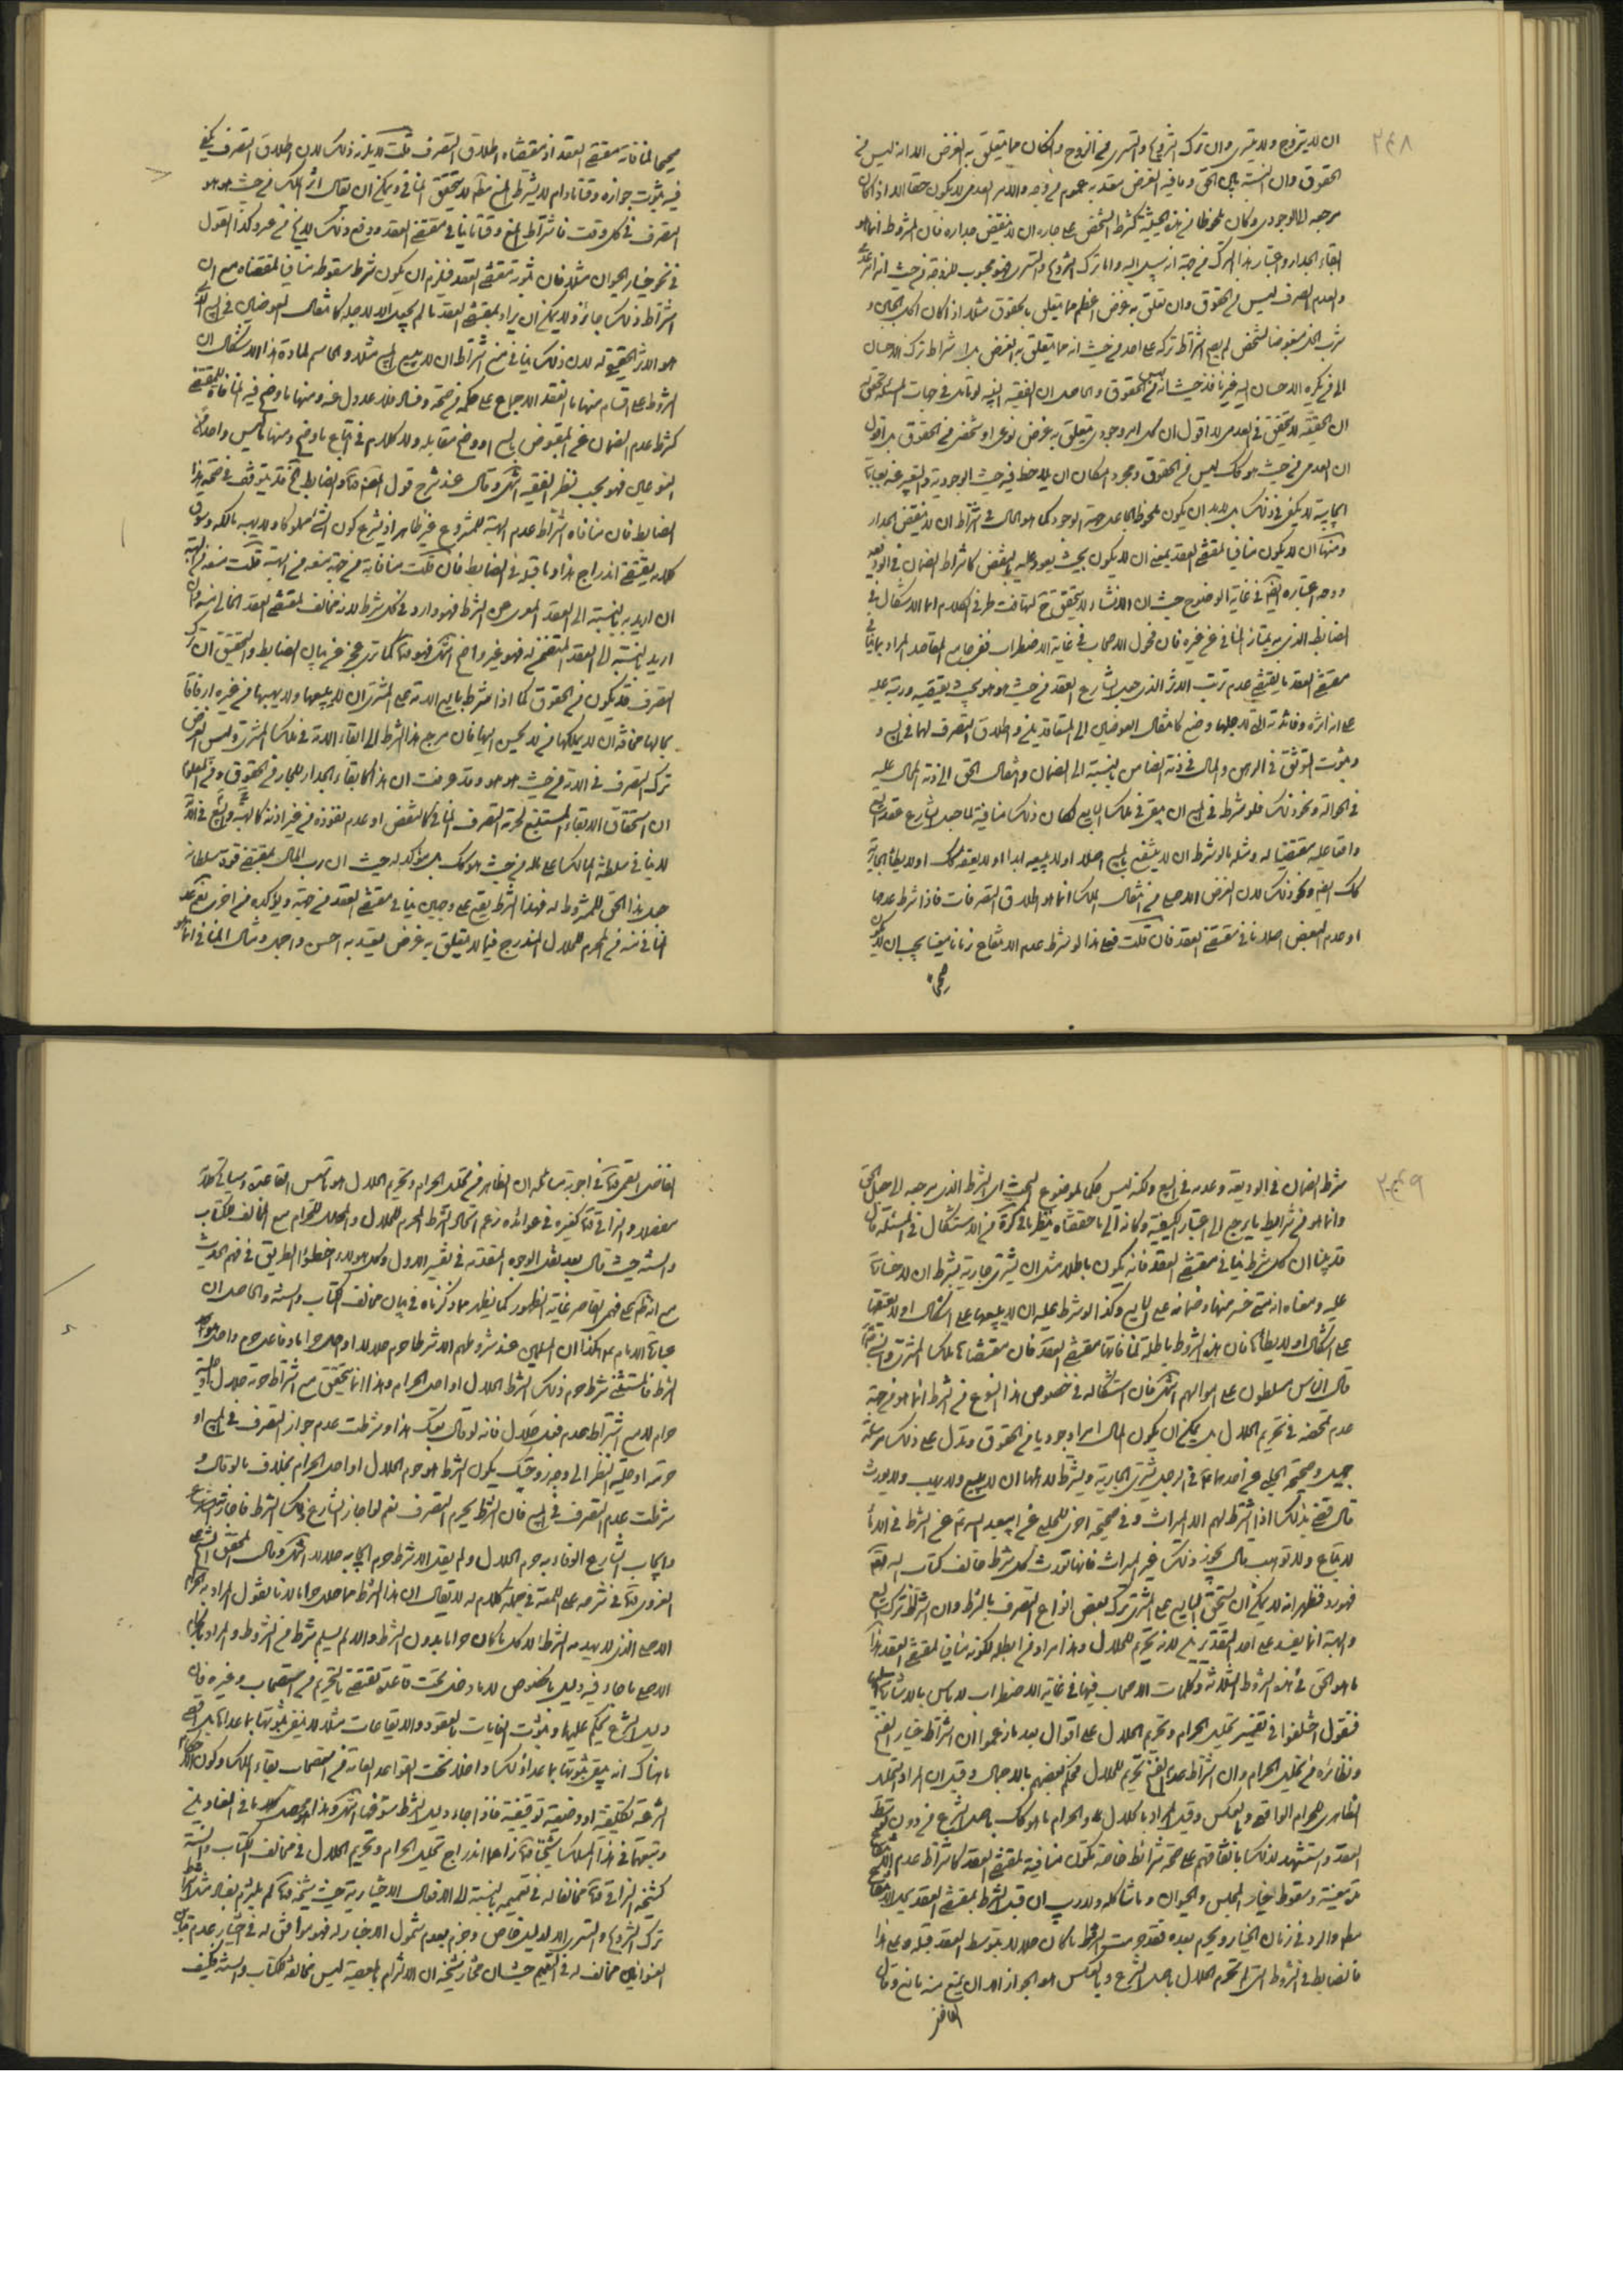 ٣٤٨
ان لا يتزوج ولا يتسرى وان ترك التزويج والتسرى من الزوج وان كان مما يتعلق به الغرض الا انه ليس من
الحقوق وان النسبة بين الحق وما فيه الغرض معتد به عموم من وجه والامر العدمى لا يكون حقا الا اذا كان
مرجعه الى الوجودى وكان ملحوظا من هذه الحيثية كشرط الشخص على جاره ان لا ينقض جداره فان المشروط انما هو
ابقاء الجدار واعتبار هذا الترك من جهة انه سبيل اليه واما ترك التزويج والتسرى فهو محبوب للزوجة من حيث انه
والعدم الصرف ليس من الحقوق وان تعلق به غرض اعظم مما يتعلق بالحقوق مثلا اذا كان اكل الجبن و
شرب الخل مبغوضا لشخص لم يصح اشتراط تركه على احد من حيث انه مما يتعلق به الغرض بل اشتراط ترك الاحسان
الى من يكره الاحسان اليه غير نافذ حيث انه ليس من الحقوق والحاصل ان الفقيه النبيه لو تأمل فى جهات المسئلة تحقق له
ان الحقية لا يتحقق فى العدمى لا اقول ان كل امر وجودى يتعلق به غرض نوعى او شخصى من الحقوق بل اقول
ان العدمى من حيث هو كك ليس من الحقوق ومجرد امكان ان يلاحظ فيه حيث الوجودية والتعبير عنه بعبارة
ايجابية لا يكفى فى ذلك بل لا بد ان يكون ملحوظا بما على جهة الوجود كما هو الحال فى اشتراط ان لا ينقض الجدار
ومنها ان لا يكون منافيا لمقتضى العقد بمعنى ان لا يكون بحيث يعود عليه بالنقض كاشتراط الضمان فى الوديعة
ووجه اعتباره ايضا فى غاية الوضوح حيث ان الانشاء لا يتحقق مع تهافت طرفى الكلام انما الاشكال فى
الضابط الذى به يمتاز المنافى عن غيره فان فحول الاصحاب فى غاية الاضطراب ففى جامع المقاصد المراد بمنافى
مقتضى العقد ما يقتضى عدم ترتب الاثر الذى جعل الشارع العقد من حيث هو هو بحيث يقتضيه ورتبه عليه
على انه اثره وفائدته التى لاجلها وضع كانتقال العوضين الى المتعاقدين واطلاق التصرف لهما فى البيع و
وثبوت التوثق فى الرهن والمال فى ذمة الضامن بالنسبة الى الضمان وانتقال الحق الى ذمة المحال عليه
فى الحوالة ونحو ذلك فلو شرط فى البيع ان يبقى فى ملك البايع لكان ذلك منافية لما جعل الشارع عقد البيع
واقعا عليه مقتضيا له ومثله ما لو شرط ان لا ينتفع بالمبيع اصلا او لا يبيعه ابدا او لا يعتقه كك او لا يطأ الجارية
كك ايضا ونحو ذلك لان الغرض الاصلى من انتقال الملك انما هو اطلاق التصرفات فاذا شرط عدمها
او عدم البعض اصلا نافى مقتضى العقد فان قلت فعلى هذا لو شرط عدم الانتفاع زمانا معينا يجب ان لا يكون
صحيحا
صحيحا لمنافاته مقتضى العقد اذ مقتضاه اطلاق التصرف قلت لا يلزم ذلك لان اطلاق التصرف يكفى
فيه ثبوت جوازه وقتا ما دام لا يشترط المنع مطلقا لا يتحقق المنافى ويمكن ان يقال اثر الملك من حيث هو هو
التصرف فى كل وقت فاشتراط المنع وقتا ما ينافى مقتضى العقد ودفع ذلك لا يخ من عسر وكذا القول
فى نحو خيار الحيوان مثلا فان ثبوته مقتضى العقد فيلزم ان يكون شرط سقوطه منافيا لمقتضاه مع ان
اشتراط ذلك جائز ولا يمكن ان يراد بمقتضى العقد ما لم يجعل الا لاجله كانتقال العوضين فى البيع الذى
هو الاثر الحقيقى له لان ذلك ينافى منع اشتراط ان لا يبيع المبيع مثلا والحاسم لمادة هذا الاشكال ان
الشروط على اقسام منها ما انعقد الاجماع على حكمه من صحة وفساد فلا عدول عنه ومنها ما وضح فيه المنافاة للمقتضى
كشرط عدم الضمان عن المقبوض بالبيع او وضح مقابله ولا كلام فى اتباع ما وضح ومنها ما ليس واحدا من
النوعين فهو بحسب نظر الفقيه انتهى وقال عند شرح قول المصنف
الضابط فان منافاة اشتراط عدم الهبة للمشروع غير ظاهر اذ لم يشرع كون الشئ مملوكا ولا يهبه مالكه وسوق
كلامه يقتضى اندراج هذا وما قبله فى الضابط فان قلت منافاته من جهة منعه من الهبة قلت منعه للهبة
ان اريد به بالنسبة الى العقد المعروض للشرط فهو وارد فى كل شرط لانه مخالف لمقتضى العقد الخالى منه وان
اريد بالنسبة الى العقد المتضمن له فهو غير واضح انتهى فهو كما ترى عجز عن بيان الضابط والتحقيق ان ترك
التصرف قد يكون من الحقوق كما اذا شرط بايع الامة على المشترى ان لا يبيعها ولا يهبها من غيره ارفاقا
بحالها مخافة ان لا يملكها من لا يحسن اليها فان مرجع هذا الشرط الى ابقاء الامة فى ملك المشترى وليس الغرض
ترك التصرف فى الامة من حيث هو هو وقد عرفت ان هذا كابقاء الجدار للجار من الحقوق ومن المعلوم
ان استحقاق الابقاء المستتبع لحرمة التصرف المنافى كالنقض او عدم نفوذه من غير اذنه كالهبة والبيع
لا ينافى سلطنة المالك على ماله من حيث هو كك بل مؤكد له حيث ان رب المال بمقتضى قوة سلطانه
جعل هذا الحق للمشروط له فهذا الشرط يقع على وجهين ينافى مقتضى العقد من جهة ويؤكده من اخرى
المنافى منه من المحرم للحلال المندرج فيما لا يتعلق به غرض يعتد به احسن واجمل ومثال المنافى انما هو
٣٤٩
شرط الضمان فى الوديعة وعدمه فى البيع ولكنه ليس محلا لموضوع البحث اى الشرط الذى مرجعه الى جعل الحق
وانما هو من شرائط ما يرجع الى اعتبار الكيفية وكأنه الى ما حققناه ينظر ما فى التذكرة من الاستشكال فى المسئلة قال
قد بينا ان كل شرط ينافى مقتضى العقد فانه يكون باطلا مثل ان يشترى جارية بشرط ان لا خسارة
عليه ومعناه انه متى خسر منها فضمانه على البايع وكذا لو شرط عليه ان لا يبيعها على اشكال او لا يعتقها
على اشكال او لا يطأها فان هذه الشروط باطلة لمنافاتها مقتضى العقد فان مقتضاها ملك المشترى
قال الناس مسلطون على اموالهم انتهى فان استشكاله فى خصوص هذا النوع من الشرط انما هو من جهة
عدم تمحضه فى تحريم الحلال بل يمكن ان يكون المآل امرا وجوديا من الحقوق وتدل على ذلك مرسلة
جميل وصحيحة الحلبى عن احدهما فى الرجل يشترى الجارية ويشترط لاهلها ان لا يبيع ولا يهب ولا يورث
قال يفى بذلك اذا شرط لهم الا الميراث وفى صحيحة اخرى للحلبى عن ابيعبد الله عن الشرط فى الاماء
لا تباع ولا توهب قال يجوز ذلك غير الميراث فانها تورث كل شرط خالف كتاب الله
فهو رد فظهر انه لا يمكن ان يستحق البايع على المشترى ترك بعض انواع التصرف بالشرط وان اشتراط ترك البيع
والهبة انما يفسد على احد التقديرين لانه تحريم للحلال وهذا مراد من ابطله لكونه منافيا لمقتضى العقد هذا
ما هو الحق فى هذه الشروط الثلاثة وكلمات الاصحاب فيها فى غاية الاضطراب لا باس بالاشارة اليها
فنقول اختلفوا فى تفسير تحليل الحرام وتحريم الحلال على اقوال بعد ما زعموا ان اشتراط خيار الفسخ
ونظائره من تحليل الحرام وان اشتراط عدم الفسخ تحريم للحلال فحكم بعضهم بالاجمال وقيل ان المراد التحليل
الظاهرى للحرام الواقعى وبالعكس وقيل المراد بالحلال والحرام ما هو كك باصل الشرع من دون توسط
العقد واستشهد لذلك باتفاقهم على صحة شرائط خاصة تكون منافية لمقتضى العقد كاشتراط عدم الانتفاع
مدة معينة وسقوط خيار المجلس والحيوان وما شاكله ولا ريب ان قبل الشرط بمقتضى العقد يحل الانتفاع
مطلقا والرد فى زمان الخيار ويحرم بعده فقد حرمت بالشرط ما كان حلالا بتوسط العقد قبله وعلى هذا
فالضابط فى الشروط التزام تحريم الحلال باصل الشرع وبالعكس هو الجواز الا ان يمنع منه مانع وقال
الفاضل
الفاضل القمى فى اجوبة مسائله ان الظاهر من تحليل الحرام وتحريم الحلال هو تأسيس القاعدة وسيأتى كلامه
مفصلا والنراقى كغيره فى عوائده زعم اتحاد الشرط المحرم للحلال والمحلل للحرام مع المخالف للكتاب
والسنة حيث قال بعد نقل الوجوه المتقدمة فى تفسير الاول وكل هؤلاء اخطؤا الطريق فى فهم الحديث
مع انه ظاهر على فهمى القاصر غاية الظهور كما يظهر مما ذكرناه فى بيان مخالف الكتاب والسنة والحاصل ان
عبارة الامام ع هكذا ان المسلمين عند شروطهم الا شرطا حرم حلالا او احل حراما وفاعل حرم واحل هو
الشرط فالمستثنى شرط حرم ذلك الشرط الحلال او احل الحرام وهذا انما يتحقق مع اشتراط حرمة حلال او حلية
حرام لا مع اشتراط عدم فعل حلال فانه لو قال بعتك هذا وشرطت عدم جواز التصرف فى المبيع او
حرمته او حلية النظر الى وجه زوجتك يكون الشرط هو حرم الحلال او احل الحرام بخلاف ما لو قال و
شرطت عدم التصرف فى المبيع فان الشرط لم يحرم التصرف نعم لو اجاز الشارع ذلك الشرط فاجازة الشارع
وايجاب الشارع الوفاء به حرم الحلال ولم يقل الا شرط حرم ايجابه حلالا انتهى وقال المحقق الشيخ على
الغروى فى شرحه على اللمعة فى جملة كلام له لا يقال ان هذا الشرط مما احل حراما لانا نقول المراد به الحرام
الاصلى الذى لا يبيحه الشرط لا كل ما كان حراما بدون الشرط والا لم يسلم شرط من الشروط والمراد بالحرام
الاصلى ما جاء فيه دليل بالخصوص لا ما دخل تحت قاعدة تقتضى التحريم من استصحاب وغيره فان
دليل الشرع يحكم عليها وثبوت الغايات بالعقود والايقاعات مثلا لا ينفى ثبوتها بما عداها بل اقصى
ما هناك انه يبقى ثبوتها بما عدا ذلك داخلا تحت القواعد العامة من استصحاب بقاء الملك وكون الاحكام
الشرعية تكليفية او وضعية توقيفية فاذا جاء دليل الشرط استوفيها انتهى وهذا محصل كلام ما فى العناوين
وتبعهما فى هذا المسلك شيخنا زاعما اندراج تحليل الحرام وتحريم الحلال فى مخالف الكتاب والسنة
كشيخه النراقى مخالفا له فى تعميمه بالنسبة الى الافعال الاختيارية حيث شيخه لم يلتزم بفساد مثل اشتراط
ترك التزويج والتسرى الا لدليل خاص وجزم بعدم شمول الاخبار له فهو موافق له فى اختيار عدم تباين
العنوانين مخالف له فى التعميم حيث ان مختار شيخه ان الالتزام بالمعصية ليس مخالفا للكتاب والسنة فكيف